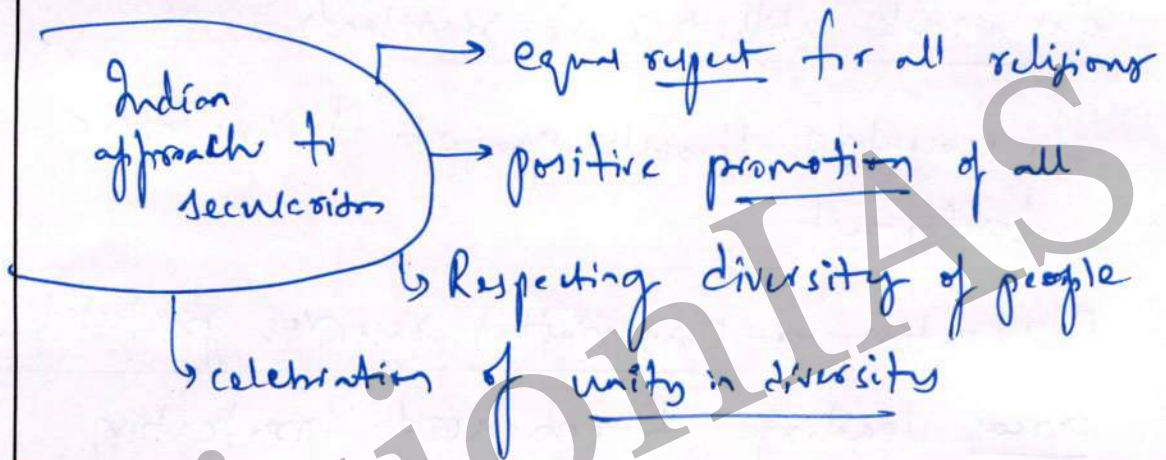 Indian
approach to
secularism
→ equal respect for all religions
→ positive promotion of all
↳ Respecting diversity of people
↳ celebration of unity in diversity
ionIAS